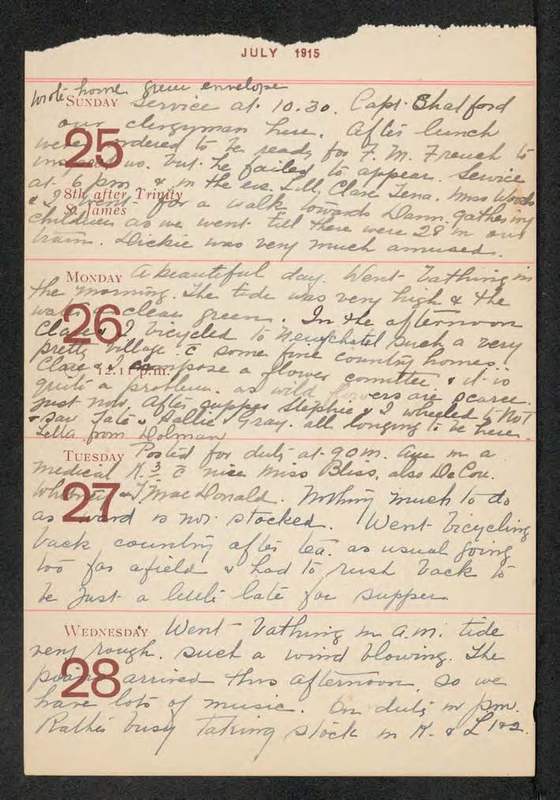 JULY 1915
Wrote home green envelope
SUNDAY Service at 10.30. Capt. Shatford
our clergyman here. After lunch
25 were ordered to be ready for F. M. French to
us. but he failed to appear. Service
at 6 pm & in the eve. Clare Miss Woods
8th after Trinity
& I went for a walk towards Dann. gathering
S. James
children as we went till there were 28 in our
train. Dickie was very much amused.
MONDAY A beautiful day. Went bathing in
the morning. The tide was very high & the
26 water clear green. In the afternoon
Clare & I bicycled to Neufchatel such a very
pretty village c some fine country homes.
Clare & I compose a flower comittee & it is
quite a problem. as wild flowers are scarce
just now. After supper Stephie & I wheeled to No 1
& saw Tate & Hallie Gray. all longing to be here.
from Dolman
TUESDAY Posted for duty at 9.0 am. Am in a
medical K. 3 c nice Miss Bliss. also De Cou.
27 & MacDonald. Nothing much to do
as ward is not stocked. Went bicycling
back country after tea. as usual going
too far afield & had to rush back to
be just a little late for supper
WEDNESDAY Went bathing in a.m. tide
very rough. such a wind blowing. The
28 piano arrived this afternoon, so we
have lots of music. On duty in pm.
Rather busy taking stock in K. & L 1 & 2.